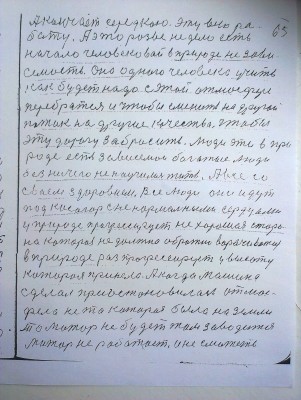 А кончает середкою. Эту всю ра-
боту. А это разве не дело есть
начало человековой в природе не зави-
симость. Оно одного человека учить
как будет надо с этой атмосфере
перебратся и чтобы сменить на другой
поток на другие качества, чтобы
эту дорогу забросить. Люди эти в при
роде есть зависимом богатые люди
без ничего не научились жить. А все со
своем здоровьем. Все люди они идут
под косогор с не нормальным сердцами
у природе прогрессирует не хорошая сторо
на которая не должна обратно ворачиватся
в природе раз прогрессирует у высоту
которая пришла. А когда машина
сделал приостановилась атмос-
фера не та которая была на земли
то мотор не будет там заводится
мотор не работает, оне сможеть
65